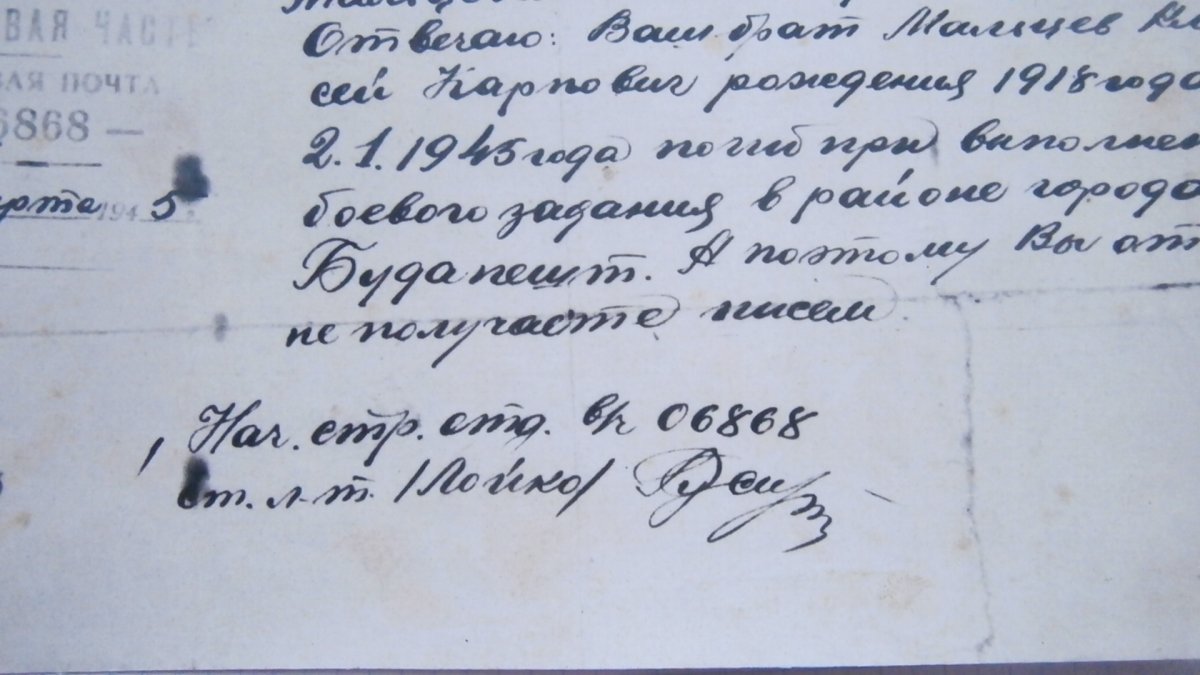 ВАЯ ЧАСТЬ
ВАЯ ПОЧТА
6868 —
арта 1945 г.
Отвечаю: Ваш брат Мальцев
сей Карпович рождения 1918 года
2.1.1945 года погиб при выполнен
боевого задания в районе города
Будапешт. А поэтому Вы от
не получаете писем.
Нач. стр. отд. в/ч 06868
ст. л-т. /Лойко/